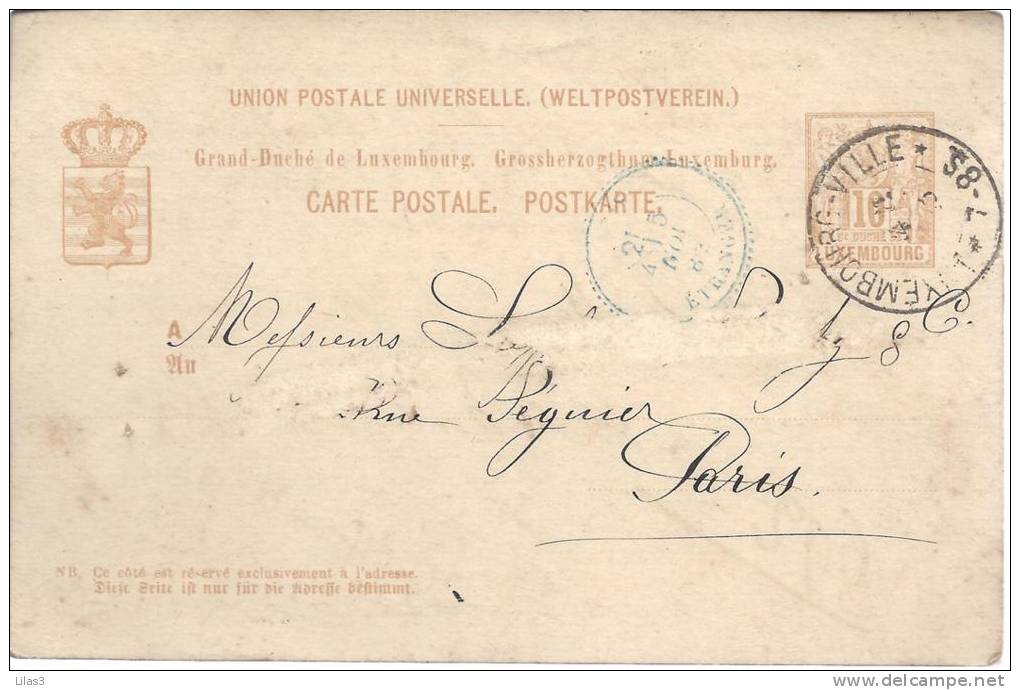 UNION POSTALE UNIVERSELLE. (WELTPOSTVEREIN.)
Grand-Duché de Luxembourg. Grossherzogthum Luxemburg.
CARTE POSTALE. POSTKARTE.
10
Gd DUCHÉ DE
LUXEMBOURG
LUXEMBOURG-VILLE
21
5
ETRANGER
A Messieurs & C.
An
Rue Séguier
Paris.
NB. Ce côté est réservé exclusivement à l'adresse.
Diese Seite ist nur für die Adresse bestimmt.
Lilas3
www.delcampe.net